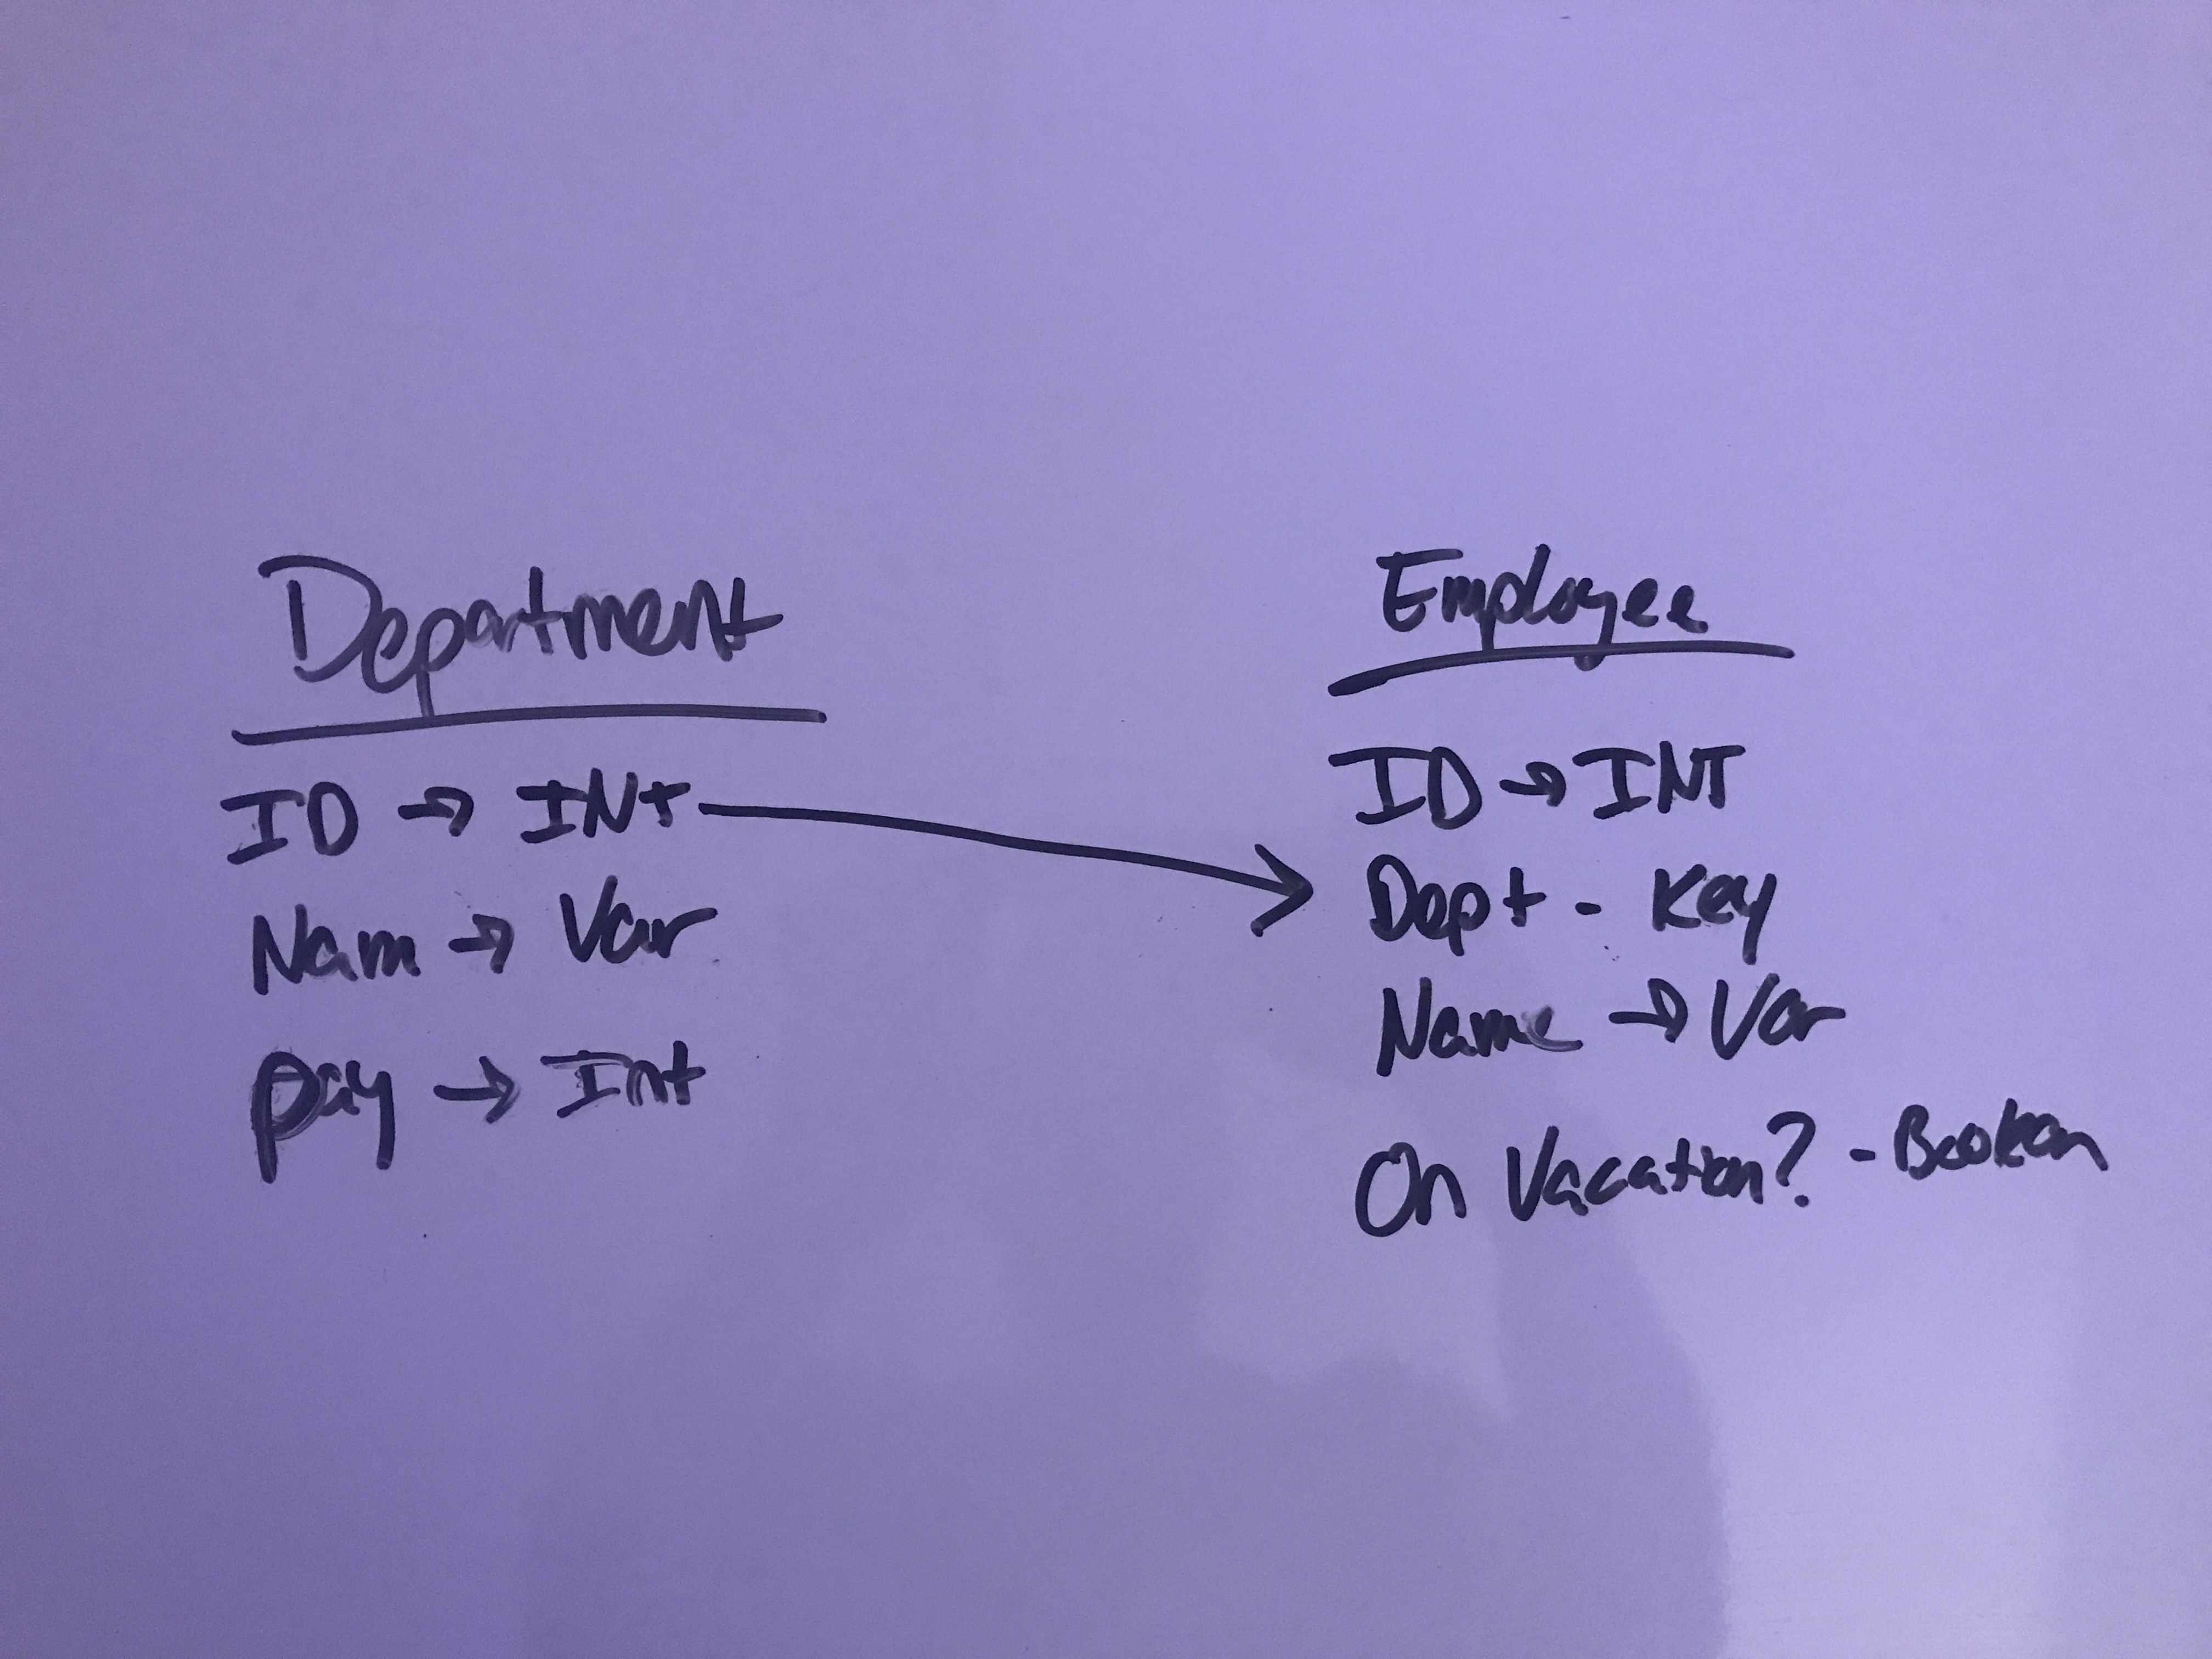 Department
ID → INt
Nam → Var
pay → Int
Employee
ID → INT
Dept - Key
Name → Var
On Vacation? - Boolean